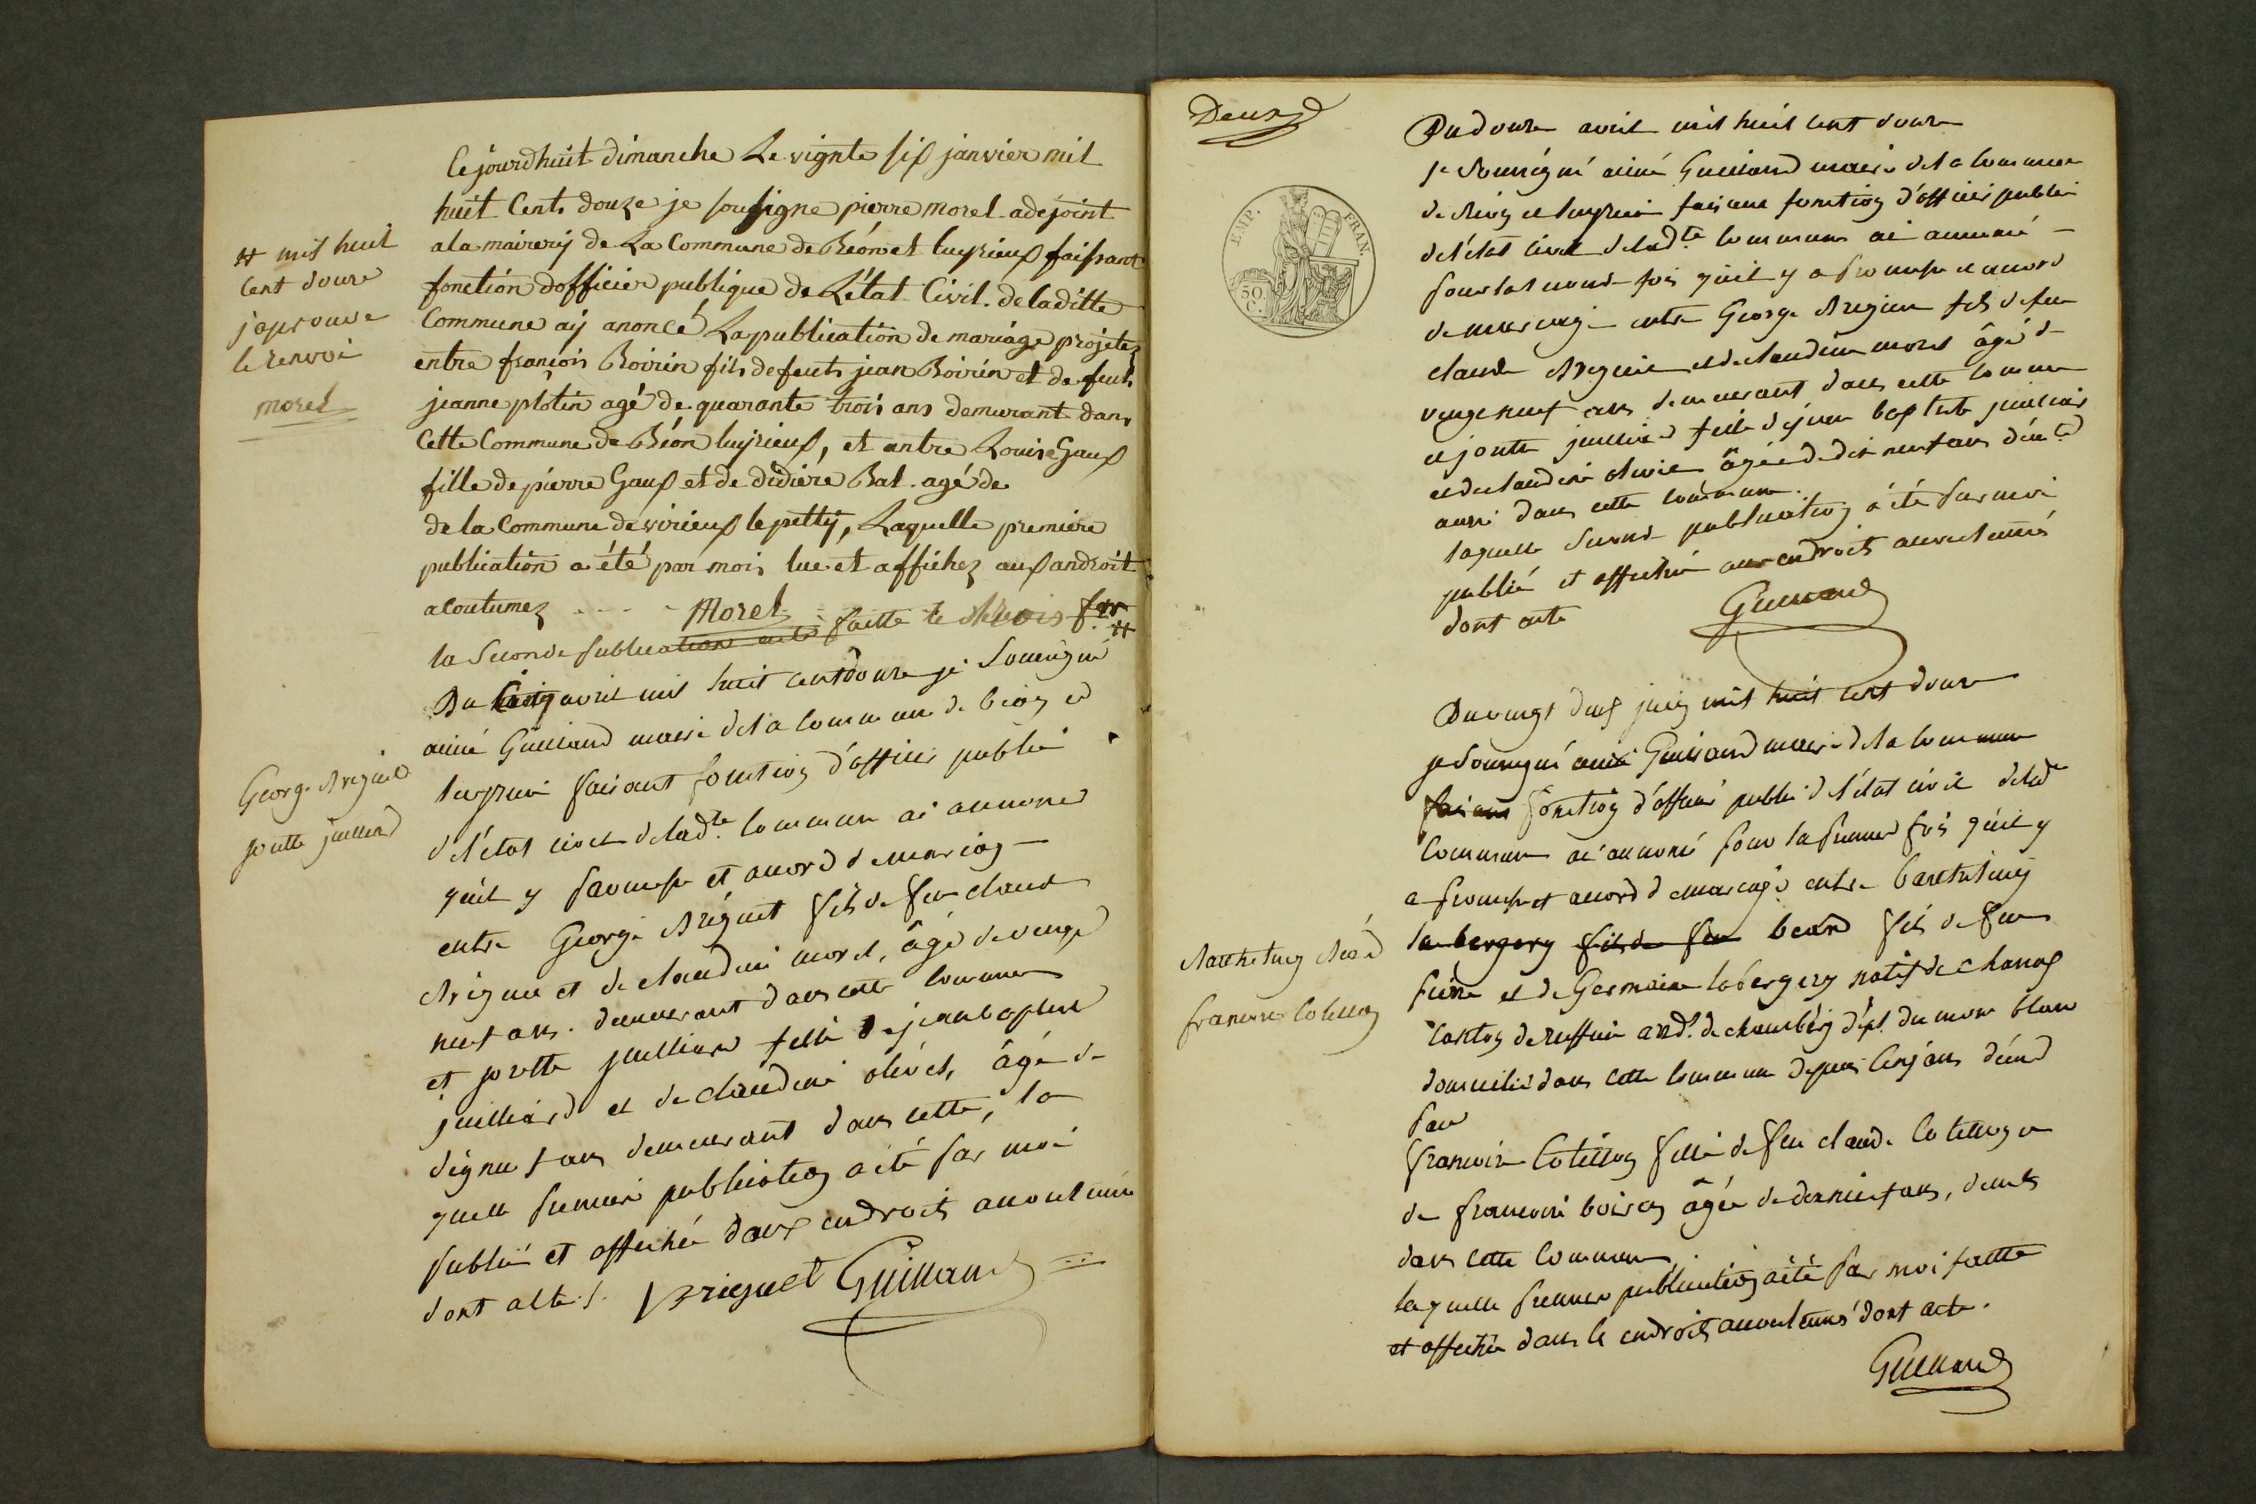 Cejourdhuit dimanche Le vignte six janvier mil
huit Cents douze je sousigne pierre morel adejoint
a la mairerij de La Commune de Béon et luyrieux faissant
fonction dofficier publique de L'état Civil. de laditte
Commune aij anoncé La publication de mariage projetez
entre françois Boirin fils de feuts jean Boirin et de feuts
jeanne plotin agé de quarante trois ans demurant dans
Cette Commune de Béon luyrieux, et antre Louise Gaux
fille de piérre Gaux et de didiére Bal. agé de
de la Commune de virieux le pettij, Laquelle premiére
publication a été par mois lue et affichez aux androit
acoutumez - - - - Morel
# mil huit
cent douze
japrouve
le renvoi
morel
la seconde publication faitte le
Du Cinq avril mil huit cent douze je soussigné
aimé Guilland maire de la commune de beon et
luyrieu faisant fonction d'officier public
de l'état civil de ladte commune ai annoncé
qu'il y promesse et accord de mariage
entre George Briguet fils de feu claude
Briguet et de claudine morel, âgé de vingt
neuf ans. demeurant dans cette commune
et josette juilliard fille de jean baptiste
juilliard et de claudine olivet, âgé de
dix neuf ans demeurant dans cette, la
quelle premiere publication a été par moi
publié et affichée dans endroits accoutumé
dont acte. Briguet Guilland
George Briguet
josette juilliard
Deux
EMP. FRAN.
50 C.
Du douze avril mil huit cent douze
je soussigné aimé Guilland maire de la commune
de Beon et luyrieu faisant fonction d'officier public
de l'état civil de ladte commune ai annoncé
pour la seconde fois qu'il y a promesse et accord
de mariage entre George Briguet fils de feu
claude Briguet et de claudine morel âgé de
vingt neuf ans demeurant dans cette commune
et josette juilliard fille de jean baptiste juilliard
et de claudine olivet âgée de dix neuf ans
aussi dans cette commune.
laquelle seconde publication a été par moi
publié et affichée aux endroits accoutumés
dont acte Guilland
Du vingt deux juin mil huit cent douze
je soussigné aimé Guilland maire de la commune
faisant fonction d'officier public de l'état civil de lad
commune ai annoncé pour la premiere fois qu'il y
a promesse et accord de mariage entre Barthelemy
labergery fils de feu beard fils de feu
et de Germaine labergery natif de
canton de ruffieu ard. de chambéry dépt. du mont blanc
domicilié dans cette commune depuis cinq ans
françoise Cotillon fille de feu claude Cotillon et
de françoise boiron âgée de dix neuf ans,
dans cette commune,
laquelle premiere publication a été par moi faitte
et affichée dans le endroits accoutumé dont acte.
Guilland
Barthelemy Beard
françoise Cotillon